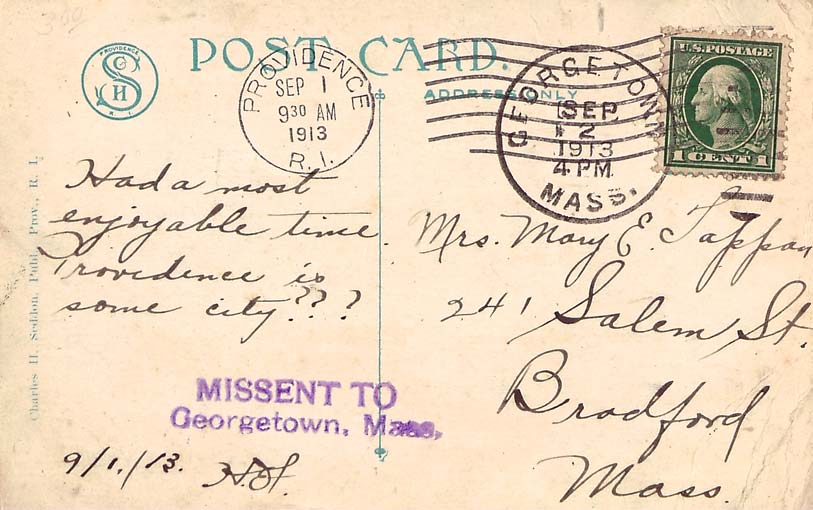 300
POST CARD.
ADDRESS ONLY
PROVIDENCE
SEP 1
9 30 AM
1913
R. I.
GEORGETOWN
SEP
2
1913
4 PM
MASS.
U.S. POSTAGE
1 CENT 1
PROVIDENCE
R. I.
Charles H. Seddon, Publ. Prov., R. I.
Had a most
enjoyable time.
Providence is
some city???
MISSENT TO
Georgetown, Mass.
9/1/13.
Mrs. Mary E. Tappan
241 Salem St.
Bradford
Mass.